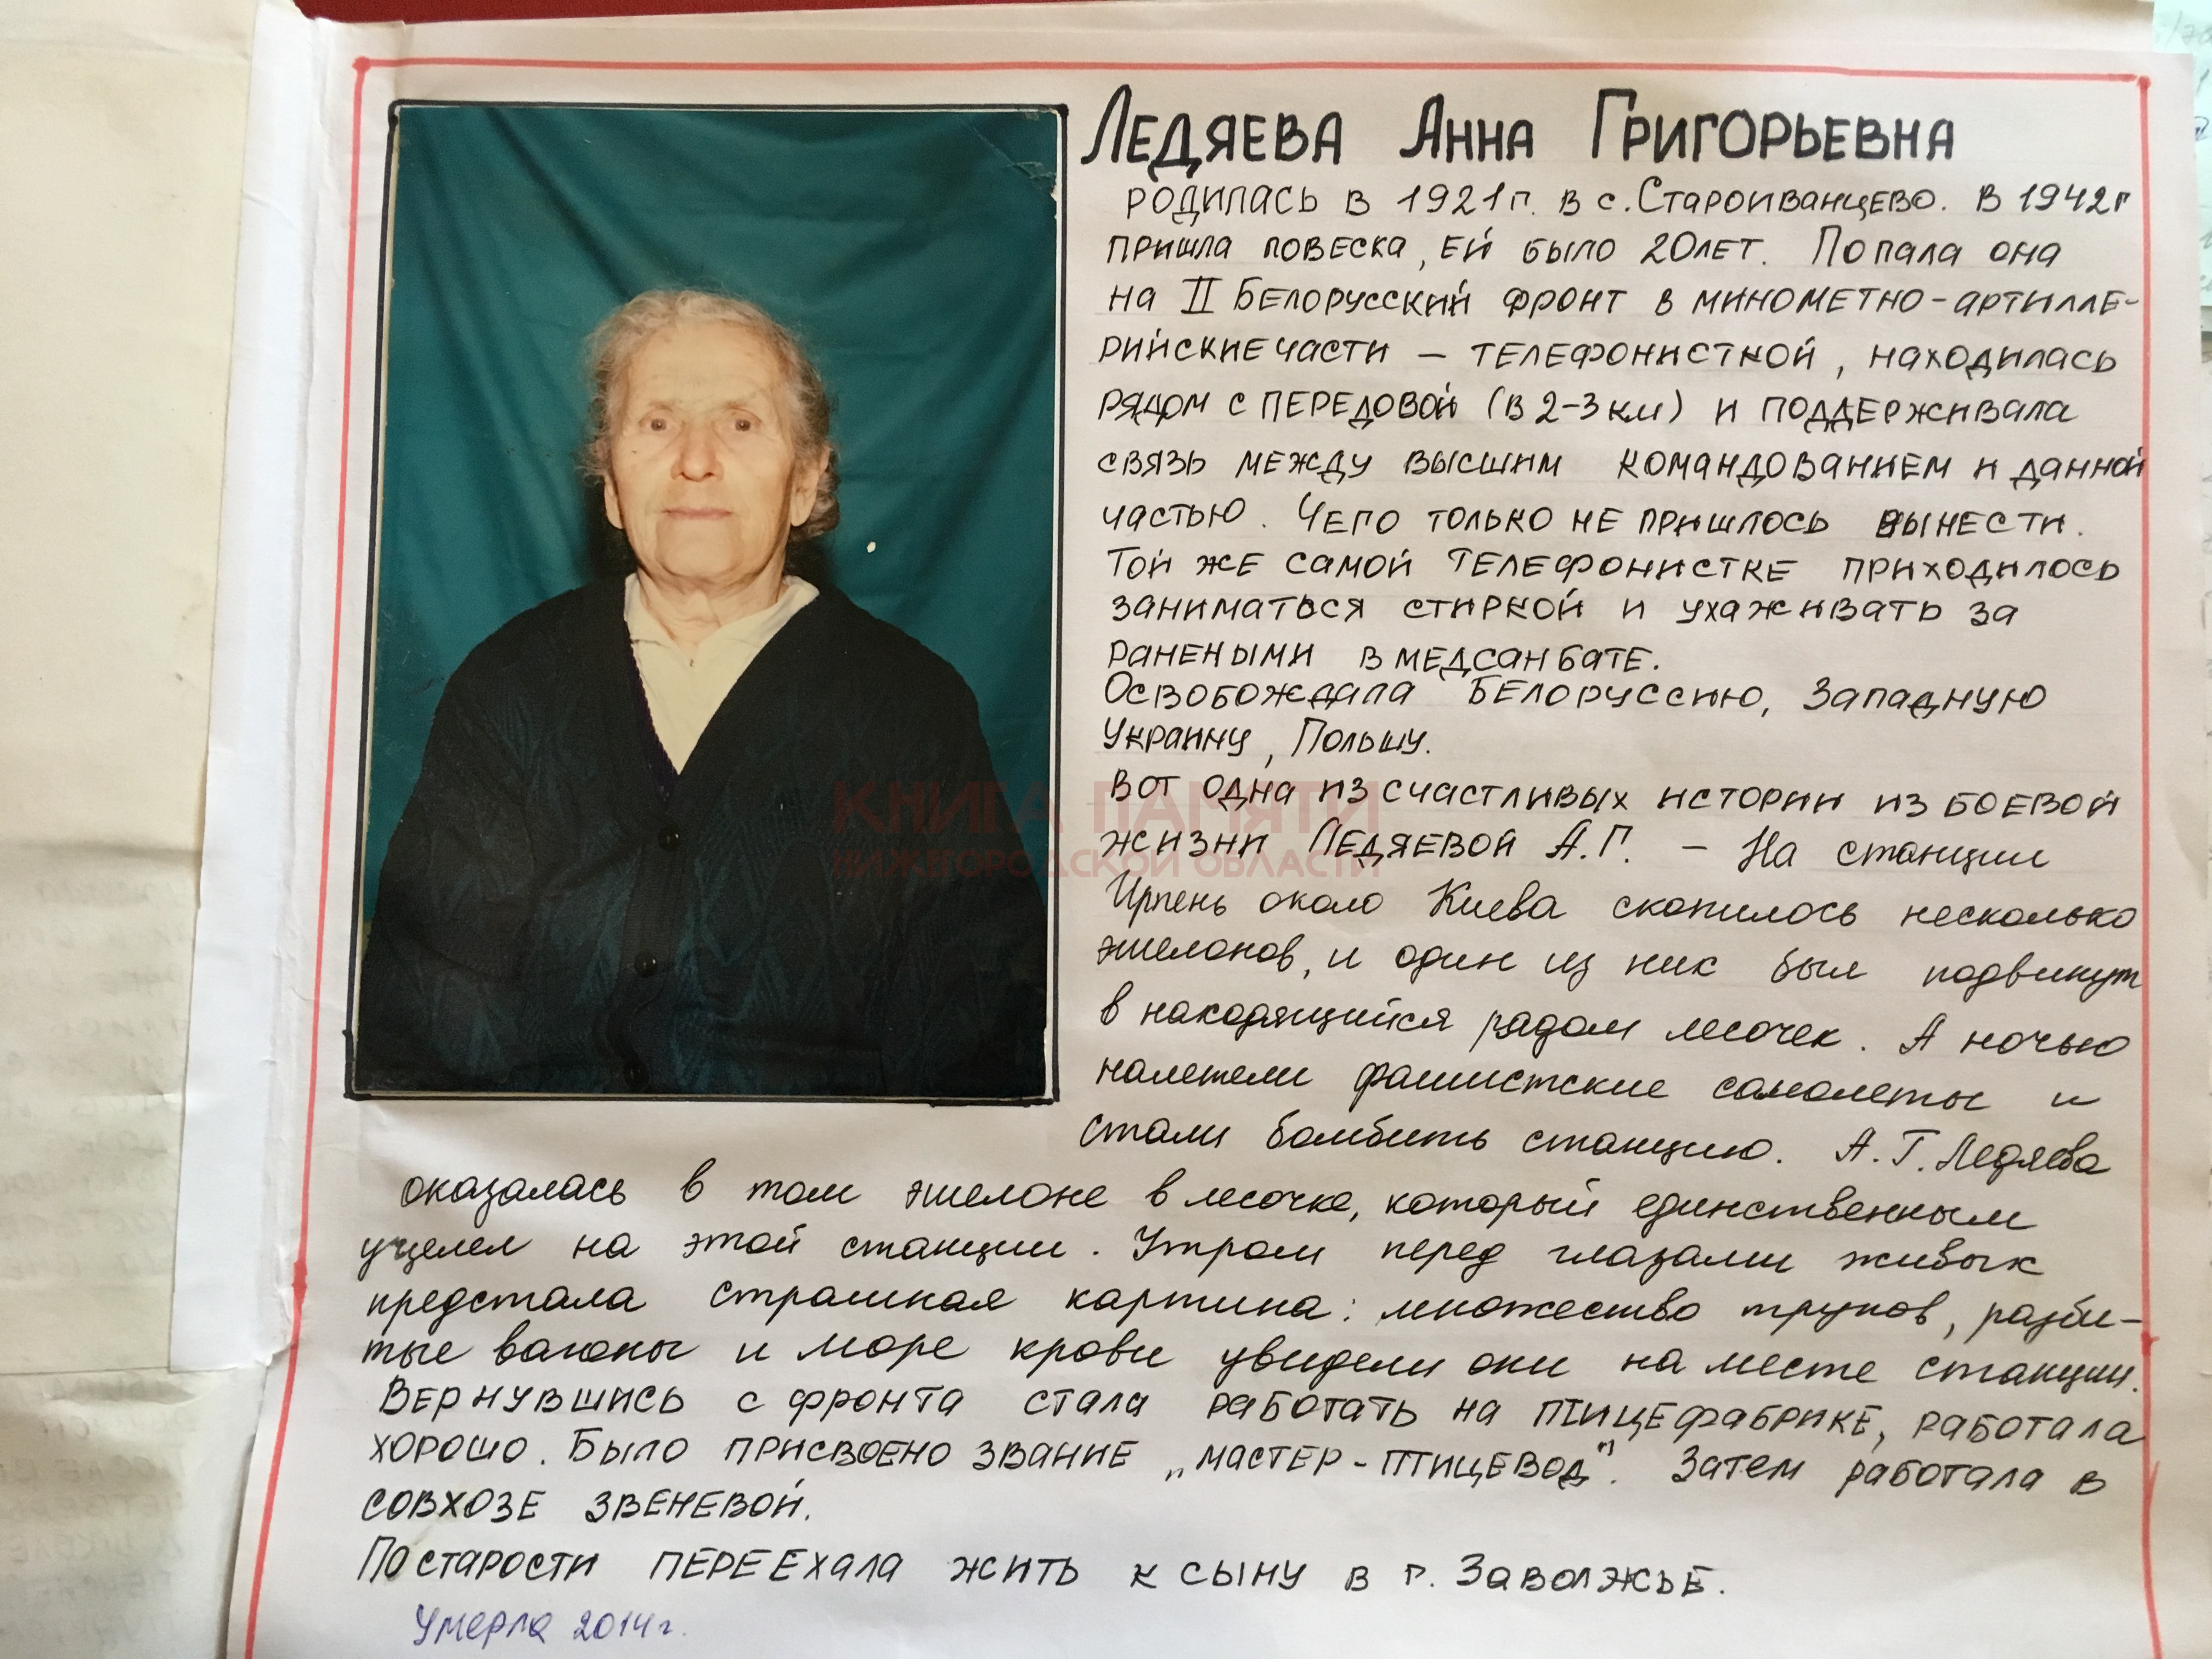 Ледяева Анна Григорьевна
родилась в 1921г. в с. Староиванцево. В 1942г
пришла повеска, ей было 20лет. Попала она
на II Белорусский фронт в минометно-артилле-
рийские части – телефонисткой, находилась
рядом с передовой (в 2-3км) и поддерживала
связь между высшим командованием и данной
частью. Чего только не пришлось вынести.
Той же самой телефонистке приходилось
заниматься стиркой и ухаживать за
ранеными в медсанбате.
Освобождала Белоруссию, Западную
Украину, Польшу.
Вот одна из счастливых истории из боевой
жизни Ледяевой А.Г. – На станции
Ирпень около Киева скопилось несколько
эшелонов, и один из них был подвинут
в находящийся рядом лесочек. А ночью
налетели фашистские самолеты и
стали бомбить станцию. А.Г. Ледяева
оказалась в том эшелоне в лесочке, который единственным
уцелел на этой станции. Утром перед глазами живых
предстала страшная картина: множество трупов, разби-
тые вагоны и море крови увидели они на месте станции.
Вернувшись с фронта стала работать на птицефабрике, работала
хорошо. Было присвоено звание „мастер-птицевод". Затем работала в
совхозе звеневой.
По старости переехала жить к сыну в г. Заволжье.
Умерла 2014г.
КНИГА ПАМЯТИ
НИЖЕГОРОДСКОЙ ОБЛАСТИ